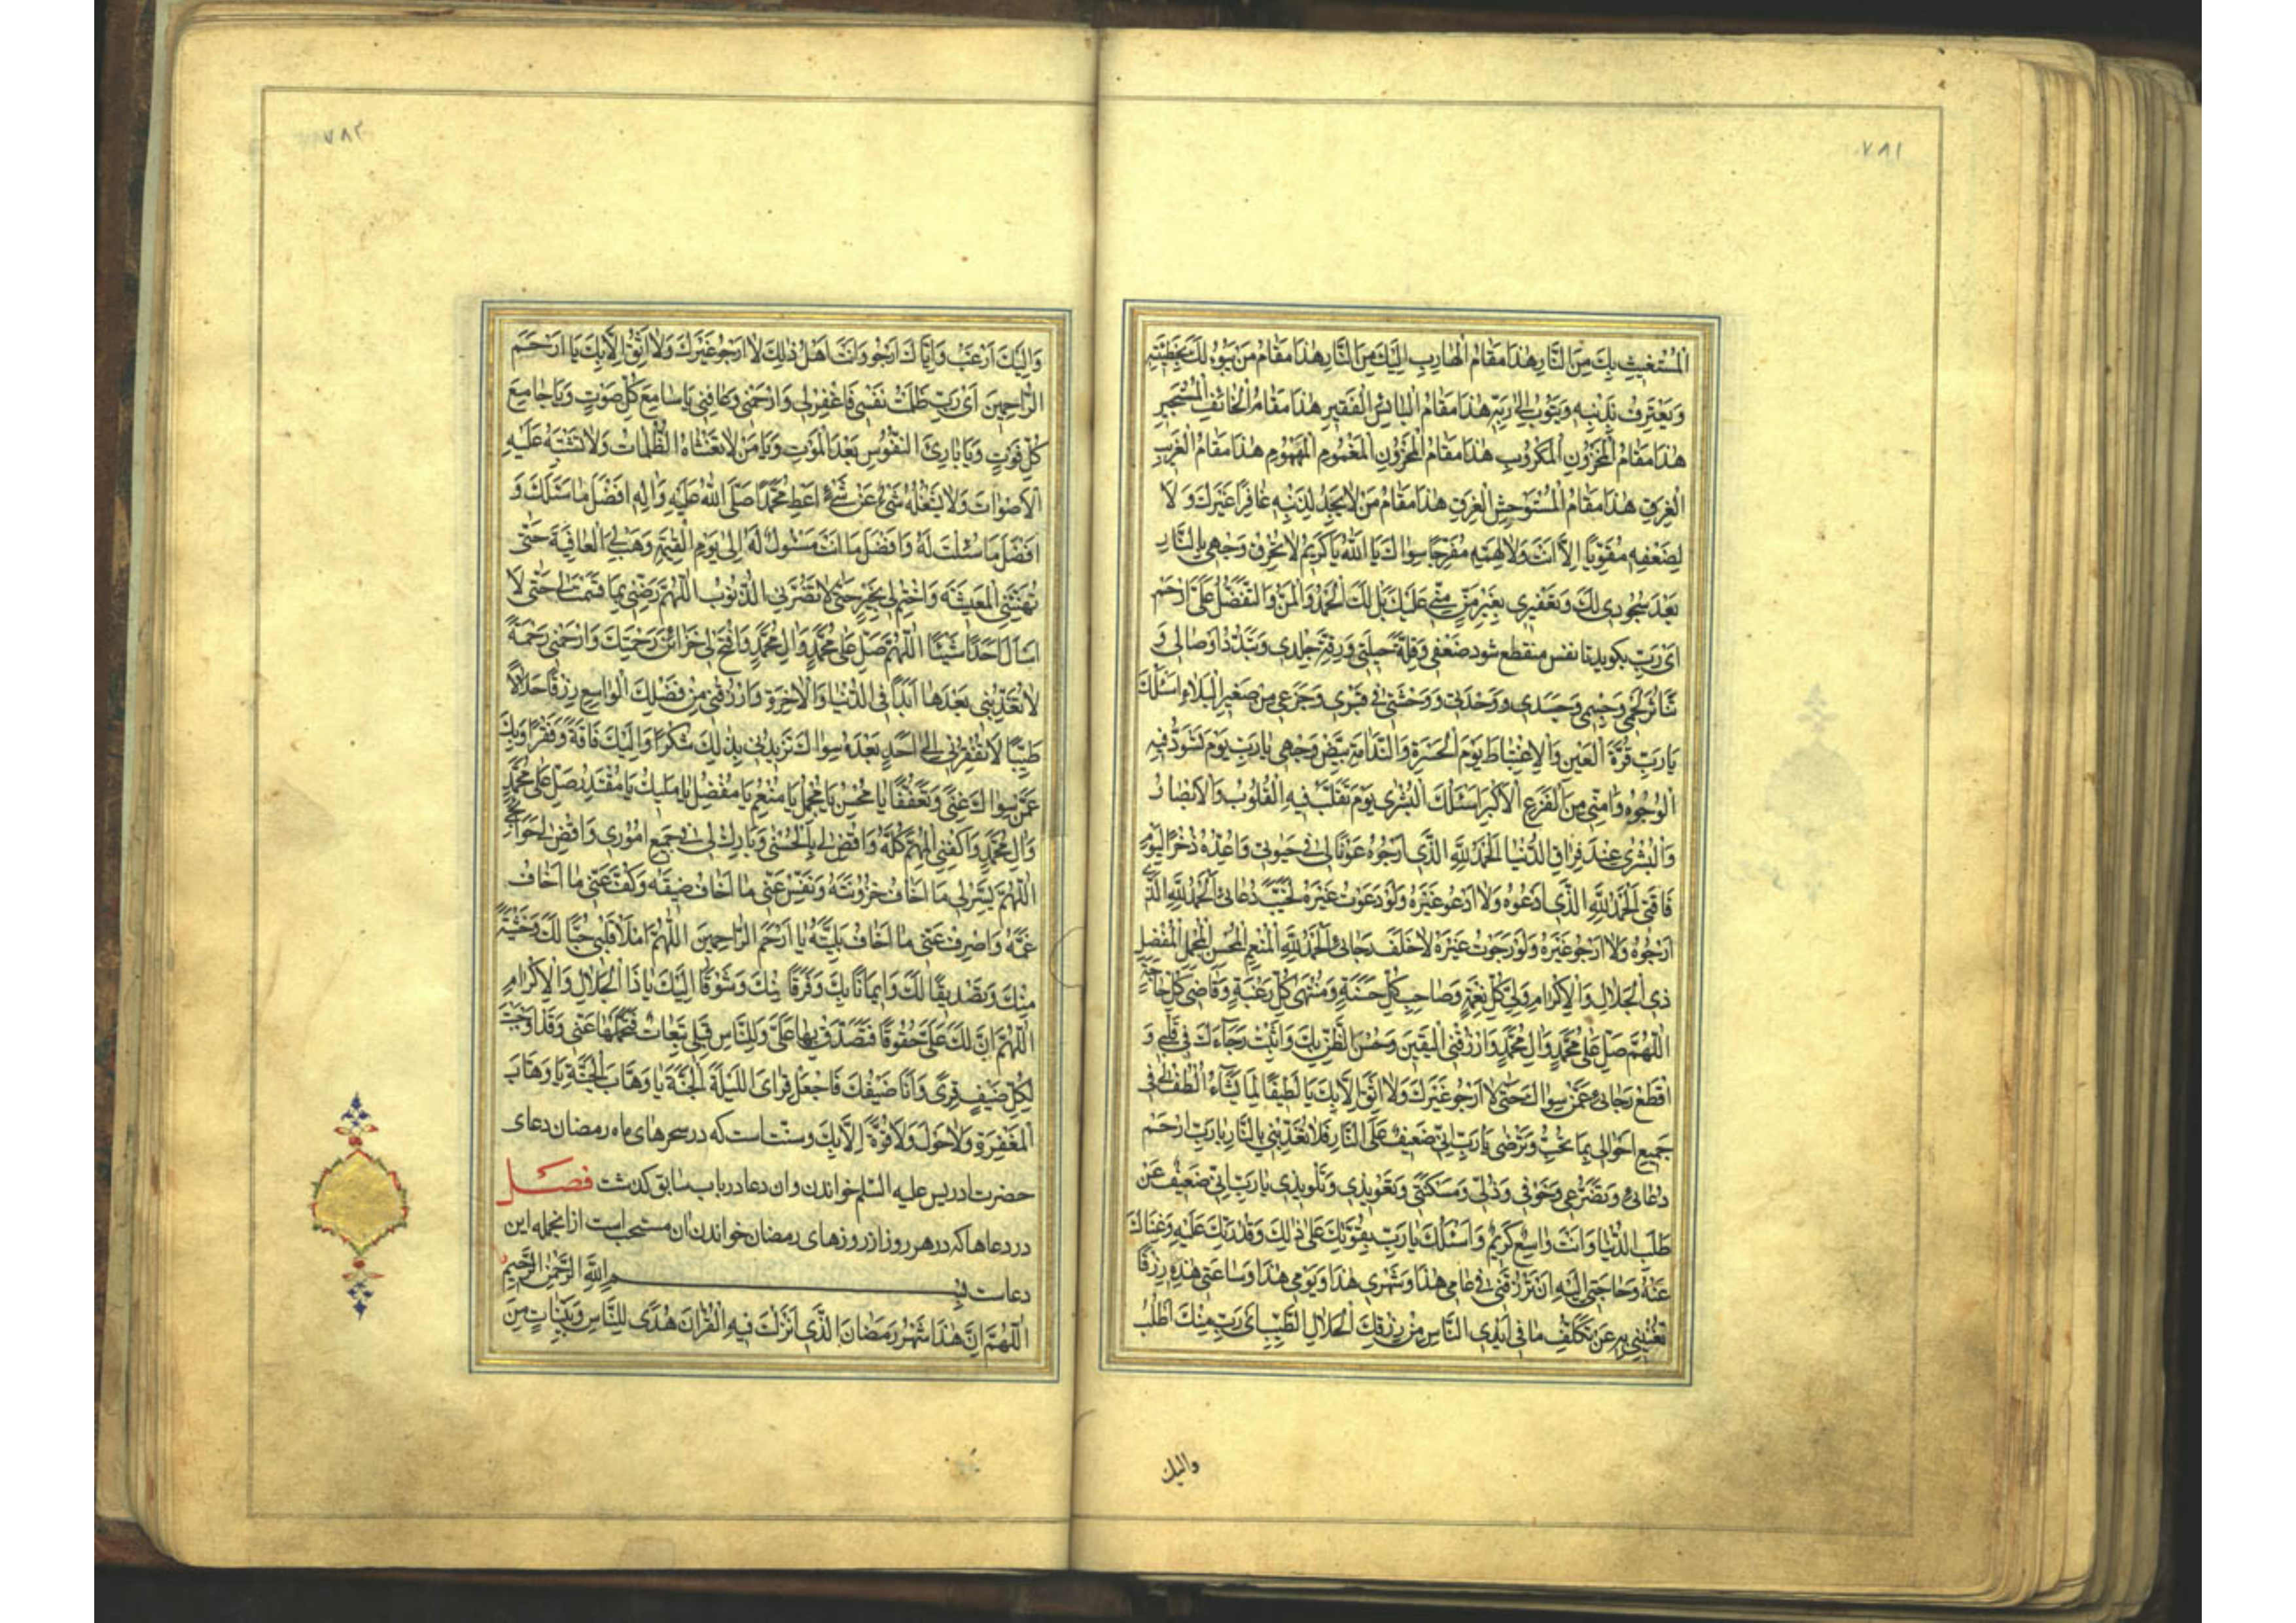 ٧٨١
الْمُسْتَغيثِ بِكَ مِنَ النَّارِ هٰذا مَقامُ الْهارِبِ اِلَيْكَ مِنَ النَّارِ هٰذا مَقامُ مَنْ يَبُوءُ لَكَ بِخَطيئَتِهِ
وَيَعْتَرِفُ بِذَنْبِهِ وَيَتُوبُ اِلىٰ رَبِّهِ هٰذا مَقامُ الْبائِسِ الْفَقيرِ هٰذا مَقامُ الْخائِفِ الْمُسْتَجيرِ
هٰذا مَقامُ الْمَحْزُونِ الْمَكْرُوبِ هٰذا مَقامُ الْمَحْزُونِ الْمَغْمُومِ الْمَهْمُومِ هٰذا مَقامُ الْغَريبِ
الْغَريقِ هٰذا مَقامُ الْمُسْتَوْحِشِ الْغَرِقِ هٰذا مَقامُ مَنْ لا يَجِدُ لِذَنْبِهِ غافِرًا غَيْرَكَ وَ لا
لِضَعْفِهِ مُقَوِّيًا اِلاَّ اَنْتَ وَلا لِهَمِّهِ مُفَرِّجًا سِواكَ يا اَللهُ يا كَريمُ لا تُحْرِقْ وَجْهى بِالنَّارِ
بَعْدَ سُجُودى لَكَ وَتَعْفيرى بِغَيْرِ مَنٍّ مِنّى عَلَيْكَ بَلْ لَكَ الْحَمْدُ وَالْمَنُّ وَالتَّفَضُّلُ عَلَىَّ ارْحَمْ
اَىْ رَبِّ بكويد تا نفس منقطع شود ضَعْفى وَقِلَّةَ حيلَتى وَرِقَّةَ جِلْدى وَتَبَدُّدَ اَوْصالى وَ
تَناثُرَ لَحْمى وَجِسْمى وَجَسَدى وَوَحْدَتى وَوَحْشَتى فى قَبْرى وَجَزَعى مِنْ صَغيرِ الْبَلاءِ اَسْئَلُكَ
يا رَبِّ قُرَّةَ الْعَيْنِ وَالاِغْتِباطَ يَوْمَ الْحَسْرَةِ وَالنَّدامَةِ بَيِّضْ وَجْهى يا رَبِّ يَوْمَ تَسْوَدُّ فيهِ
الْوُجُوهُ وَامِنّى مِنَ الْفَزَعِ الْاَكْبَرِ اَسْئَلُكَ الْبُشْرى يَوْمَ تَقَلَّبُ فيهِ الْقُلُوبُ وَالْاَبْصارُ
وَالْبُشْرى عِنْدَ فِراقِ الدُّنْيا اَلْحَمْدُ لِلّٰهِ الَّذى اَرْجُوهُ عَوْنًا لى فى حَيٰوتى وَاُعِدُّهُ ذُخْرًا لِيَوْمِ
فاقَتى اَلْحَمْدُ لِلّٰهِ الَّذى اَدْعُوهُ وَلا اَدْعُو غَيْرَهُ وَلَوْ دَعَوْتُ غَيْرَهُ لَخَيَّبَ دُعائى اَلْحَمْدُ لِلّٰهِ الَّذى
اَرْجُوهُ وَلا اَرْجُو غَيْرَهُ وَلَوْ رَجَوْتُ غَيْرَهُ لَاَخْلَفَ رَجائى اَلْحَمْدُ لِلّٰهِ الْمُنْعِمِ الْمُحْسِنِ الْمُجْمِلِ الْمُفْضِلِ
ذِى الْجَلالِ وَالْاِكْرامِ وَلِىِّ كُلِّ نِعْمَةٍ وَصاحِبِ كُلِّ حَسَنَةٍ وَمُنْتَهى كُلِّ رَغْبَةٍ وَقاضى كُلِّ حاجَةٍ
اَللّٰهُمَّ صَلِّ عَلى مُحَمَّدٍ وَالِ مُحَمَّدٍ وَارْزُقْنِى الْيَقينَ وَحُسْنَ الظَّنِّ بِكَ وَاَثْبِتْ رَجآءَكَ فى قَلْبى وَ
اقْطَعْ رَجائى عَمَّنْ سِواكَ حَتّى لا اَرْجُوَ غَيْرَكَ وَلا اَثِقَ اِلاَّ بِكَ يا لَطيفًا لِما يَشآءُ اُلْطُفْ لى فى
جَميعِ اَحْوالى بِما تُحِبُّ وَتَرْضى يا رَبِّ اِنّى ضَعيفٌ عَلَى النَّارِ فَلا تُعَذِّبْنى بِالنَّارِ يا رَبِّ ارْحَمْ
دُعائى وَتَضَرُّعى وَخَوْفى وَذُلّى وَمَسْكَنَتى وَتَعْويذى وَتَلْويذى يا رَبِّ اِنّى ضَعيفٌ عَنْ
طَلَبِ الدُّنْيا وَاَنْتَ واسِعٌ كَريمٌ وَاَسْئَلُكَ يا رَبِّ بِقُوَّتِكَ عَلى ذٰلِكَ وَقُدْرَتِكَ عَلَيْهِ وَغِناكَ
عَنْهُ وَحاجَتى اِلَيْهِ اَنْ تَرْزُقَنى فى عامى هٰذا وَشَهْرى هٰذا وَيَوْمى هٰذا وَساعَتى هٰذِهِ رِزْقًا
تُغْنينى بِهِ عَنْ تَكَلُّفِ ما فى اَيْدِى النَّاسِ مِنْ رِزْقِكَ الْحَلالِ الطَّيِّبِ اَىْ رَبِّ مِنْكَ اَطْلُبُ
واليك
٧٨٢
وَاِلَيْكَ اَرْغَبُ وَاِيَّاكَ اَرْجُو وَاَنْتَ اَهْلُ ذٰلِكَ لا اَرْجُو غَيْرَكَ وَلا اَثِقُ اِلاَّ بِكَ يا اَرْحَمَ
الرَّاحِمينَ اَىْ رَبِّ ظَلَمْتُ نَفْسى فَاغْفِرْلى وَارْحَمْنى وَعافِنى يا سامِعَ كُلِّ صَوْتٍ وَيا جامِعَ
كُلِّ فَوْتٍ وَيا بارِئَ النُّفُوسِ بَعْدَ الْمَوْتِ وَيا مَنْ لا تَغْشاهُ الظُّلُماتُ وَلا تَشْتَبِهُ عَلَيْهِ
الْاَصْواتُ وَلا يَشْغَلُهُ شَىْءٌ عَنْ شَىْءٍ اَعْطِ مُحَمَّدًا صَلَّى اللهُ عَلَيْهِ وَالِهِ اَفْضَلَ ما سَئَلَكَ وَ
اَفْضَلَ ما سُئِلْتَ لَهُ وَاَفْضَلَ ما اَنْتَ مَسْئُولٌ لَهُ اِلى يَوْمِ الْقِيٰمَةِ وَهَبْ لِىَ الْعافِيَةَ حَتّى
تُهَنِّئَنِى الْمَعيشَةَ وَاخْتِمْ لى بِخَيْرٍ حَتّى لا تَضُرَّنِى الذُّنُوبُ اَللّٰهُمَّ رَضِّنى بِما قَسَمْتَ لى حَتّى لا
اَسْاَلَ اَحَدًا شَيْئًا اَللّٰهُمَّ صَلِّ عَلى مُحَمَّدٍ وَالِ مُحَمَّدٍ وَافْتَحْ لى خَزائِنَ رَحْمَتِكَ وَارْحَمْنى رَحْمَةً
لا تُعَذِّبُنى بَعْدَها اَبَدًا فِى الدُّنْيا وَالْاٰخِرَةِ وَارْزُقْنى مِنْ فَضْلِكَ الْواسِعِ رِزْقًا حَلالاً
طَيِّبًا لا تُفْقِرُنى اِلى اَحَدٍ بَعْدَهُ سِواكَ تَزيدُنى بِذٰلِكَ شُكْرًا وَاِلَيْكَ فاقَةً وَفَقْرًا وَبِكَ
عَمَّنْ سِواكَ غِنًى وَتَعَفُّفًا يا مُحْسِنُ يا مُجْمِلُ يا مُنْعِمُ يا مُفْضِلُ يا مَليكُ يا مُقْتَدِرُ صَلِّ عَلى مُحَمَّدٍ
وَالِ مُحَمَّدٍ وَاكْفِنِى الْمُهِمَّ كُلَّهُ وَاقْضِ لى بِالْحُسْنى وَبارِكْ لى فى جَميعِ اُمُورى وَاقْضِ لى حَوآئِجى
اَللّٰهُمَّ يَسِّرْلى ما اَخافُ حُزُونَتَهُ وَنَفِّسْ عَنّى ما اَخافُ ضيقَهُ وَكُفَّ عَنّى ما اَخافُ
غَمَّهُ وَاصْرِفْ عَنّى ما اَخافُ بَلِيَّتَهُ يا اَرْحَمَ الرَّاحِمينَ اَللّٰهُمَّ امْلَاْ قَلْبى حُبًّا لَكَ وَخَشْيَةً
مِنْكَ وَتَصْديقًا لَكَ وَايمانًا بِكَ وَفَرَقًا مِنْكَ وَشَوْقًا اِلَيْكَ يا ذَا الْجَلالِ وَالْاِكْرامِ
اَللّٰهُمَّ اِنَّ لَكَ عَلَىَّ حُقُوقًا فَتَصَدَّقْ بِها عَلَىَّ وَلِلنَّاسِ قِبَلى تَبِعاتٌ فَتَحَمَّلْها عَنّى وَقَدْ اَوْجَبْتَ
لِكُلِّ ضَيْفٍ قِرًى وَاَنَا ضَيْفُكَ فَاجْعَلْ قِراىَ اللَّيْلَةَ الْجَنَّةَ يا وَهَّابَ الْجَنَّةِ يا وَهَّابَ
الْمَغْفِرَةِ وَلا حَوْلَ وَلا قُوَّةَ اِلاَّ بِكَ وسنّت است كه در سحرهاى ماه رمضان دعاى
حضرت ادريس عليه السّلم خواندن و ان دعا در باب سابق كذشت فصل
در دعاها كه در هر روز از روزهاى رمضان خواندن ان مستحب است از انجمله اين
دعاست بِسْمِ اللهِ الرَّحْمٰنِ الرَّحيمِ
اَللّٰهُمَّ اِنَّ هٰذا شَهْرُ رَمَضانَ الَّذى اَنْزَلْتَ فيهِ الْقُرْانَ هُدًى لِلنَّاسِ وَبَيِّناتٍ مِنَ